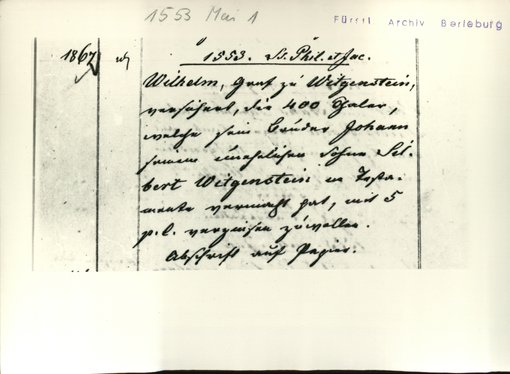 1553 Mai 1
Fürstl Archiv Berleburg
1867
1553. Ss. Phil. et Jac.
Wilhelm, Graf zu Witgenstein,
versichert, die 400 Thaler,
welche sein Bruder Johann
seinem unehelichen Sohne Sei-
bert Witgenstein im Testa-
mente vermacht hat, mit 5
p. C. verzinsen zu wollen.
Abschrift auf Papier.